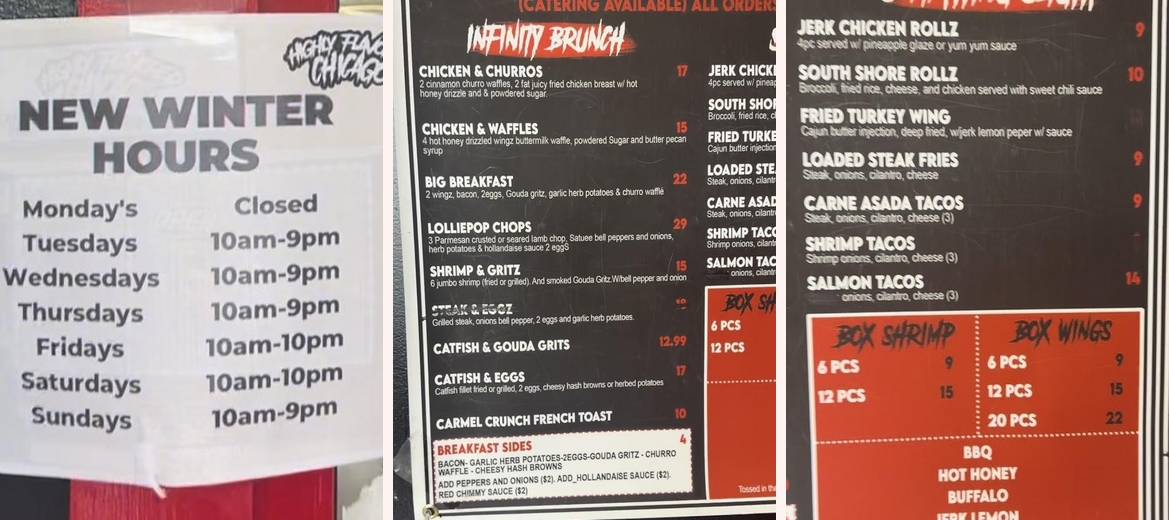 HIGHLY FLAVO
CHICAGO
NEW WINTER
HOURS
Monday's Closed
Tuesdays 10am-9pm
Wednesdays 10am-9pm
Thursdays 10am-9pm
Fridays 10am-10pm
Saturdays 10am-10pm
Sundays 10am-9pm
(CATERING AVAILABLE) ALL ORDERS
INFINITY BRUNCH
CHICKEN & CHURROS 17
2 cinnamon churro waffles, 2 fat juicy fried chicken breast w/ hot
honey drizzle and & powdered sugar.
CHICKEN & WAFFLES 15
4 hot honey drizzled wingz buttermilk waffle, powdered Sugar and butter pecan
syrup
BIG BREAKFAST 22
2 wingz, bacon, 2eggs, Gouda gritz, garlic herb potatoes & churro waffle
LOLLIEPOP CHOPS 29
3 Parmesan crusted or seared lamb chop, Satuee bell peppers and onions,
herb potatoes & hollandaise sauce 2 eggS
SHRIMP & GRITZ 15
6 jumbo shrimp (fried or grilled). And smoked Gouda Gritz.W/bell pepper and onion
STEAK & EGGZ
Grilled steak, onions bell pepper, 2 eggs and garlic herb potatoes.
CATFISH & GOUDA GRITS 12.99
CATFISH & EGGS 17
Catfish fillet fried or grilled, 2 eggs, cheesy hash browns or herbed potatoes
CARMEL CRUNCH FRENCH TOAST 10
BREAKFAST SIDES 4
BACON- GARLIC HERB POTATOES-2EGGS-GOUDA GRITZ - CHURRO
WAFFLE - CHEESY HASH BROWNS
ADD PEPPERS AND ONIONS ($2). ADD_HOLLANDAISE SAUCE ($2).
RED CHIMMY SAUCE ($2)
JERK CHICK
4pc served w/ pineap
SOUTH SHOR
Broccoli, fried rice, c
FRIED TURKE
Cajun butter injection
LOADED STEA
Steak, onions, cilantr
CARNE ASAD
Steak, onions, cilantr
SHRIMP TACO
Shrimp onions, cilant
SALMON TAC
onions, cilant
BOX SH
6 PCS
12 PCS
Tossed in the
JERK CHICKEN ROLLZ 9
4pc served w/ pineapple glaze or yum yum sauce
SOUTH SHORE ROLLZ 10
Broccoli, fried rice, cheese, and chicken served with sweet chili sauce
FRIED TURKEY WING
Cajun butter injection, deep fried, w/jerk lemon peper w/ sauce
LOADED STEAK FRIES 9
Steak, onions, cilantro, cheese
CARNE ASADA TACOS 9
Steak, onions, cilantro, cheese (3)
SHRIMP TACOS
Shrimp onions, cilantro, cheese (3)
SALMON TACOS 14
onions, cilantro, cheese (3)
BOX SHRIMP
6 PCS 9
12 PCS 15
BOX WINGS
6 PCS 9
12 PCS 15
20 PCS 22
BBQ
HOT HONEY
BUFFALO
JERK LEMON